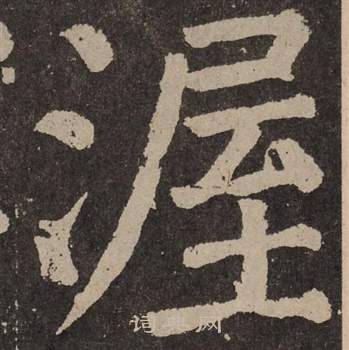 渥
词典网